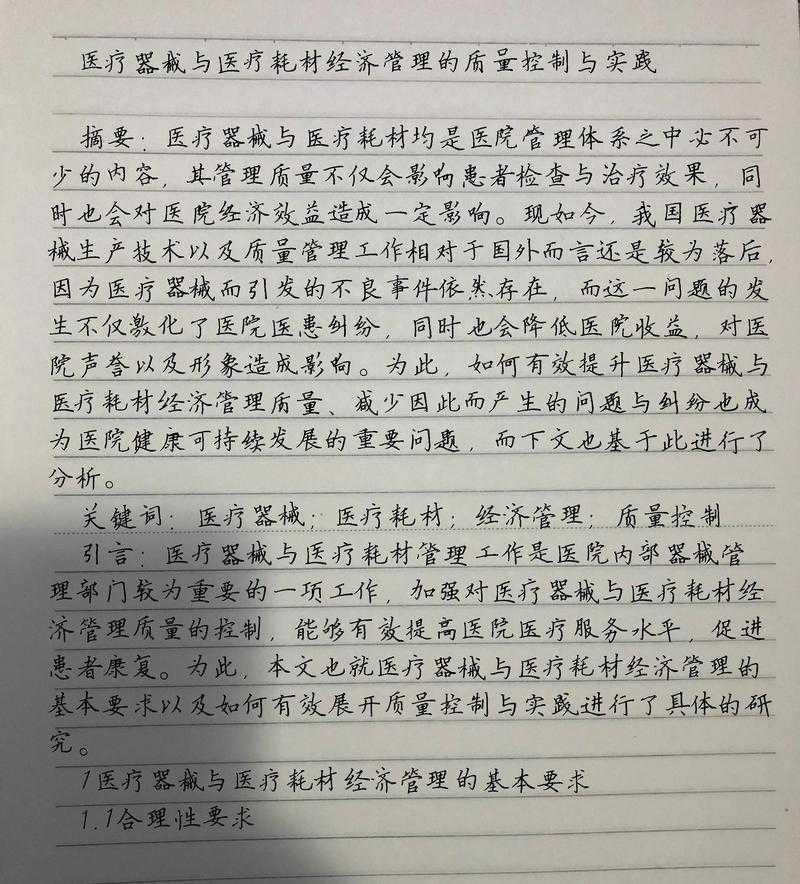 医疗器械与医疗耗材经济管理的质量控制与实践
摘要：医疗器械与医疗耗材均是医院管理体系之中必不可
少的内容，其管理质量不仅会影响患者检查与治疗效果，同
时也会对医院经济效益造成一定影响。现如今，我国医疗器
械生产技术以及质量管理工作相对于国外而言还是较为落后，
因为医疗器械而引发的不良事件依然存在，而这一问题的发
生不仅激化了医院医患纠纷，同时也会降低医院收益，对医
院声誉以及形象造成影响。为此，如何有效提升医疗器械与
医疗耗材经济管理质量、减少因此而产生的问题与纠纷也成
为医院健康可持续发展的重要问题，而下文也基于此进行了
分析。
关键词：医疗器械；医疗耗材；经济管理；质量控制
引言：医疗器械与医疗耗材管理工作是医院内部器械管
理部门较为重要的一项工作，加强对医疗器械与医疗耗材经
济管理质量的控制，能够有效提高医院医疗服务水平，促进
患者康复。为此，本文也就医疗器械与医疗耗材经济管理的
基本要求以及如何有效展开质量控制与实践进行了具体的研
究。
1医疗器械与医疗耗材经济管理的基本要求
1.1合理性要求